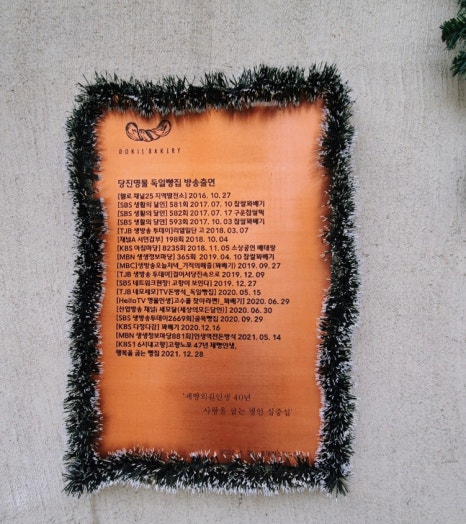 DOKIL BAKERY
당진명물 독일빵집 방송출연
[헬로 채널25 지역발전소] 2016. 10. 27
[SBS 생활의 달인] 581회 2017. 07. 10 찹쌀꽈배기
[SBS 생활의 달인] 582회 2017. 07. 17 구운찹쌀떡
[SBS 생활의 달인] 593회 2017. 10. 03 찹쌀꽈배기
[TJB 생방송 투데이]리얼밀담 고 2018. 03. 07
[채널A 서민갑부] 198회 2018. 10. 04
[KBS 아침마당] 8235회 2018. 11. 05 소상공인 배대랑
[MBN 생생정보마당] 365회 2019. 04. 10 찹쌀꽈배기
[MBC]생방송오늘저녁_기적의매출(꽈배기) 2019. 09. 27
[TJB 생방송 투데이]걸어서당진속으로 2019. 12. 09
[SBS 네트워크현장! 고향이 보인다] 2019. 12. 27
[TJB 네모세모]TV돈방석_독일빵집] 2020. 05. 15
[HelloTV 명물인생]고수를 찾아라편!_꽈배기] 2020. 06. 29
[산업방송 채널i 세모달(세상의모든달인)] 2020. 06. 30
[SBS 생방송투데이2669회]골목빵집 2020. 09. 29
[KBS 다정다감] 꽈배기 2020.12.16
[MBN 생생정보마당881회]인생역전돈방석 2021. 05. 14
[KBS1 6시내고향]고향노포 47년 제빵인생,
행복을 굽는 빵집 2021. 12. 28
'제빵외원인생 40년
사랑을 굽는 명인 심중섭'